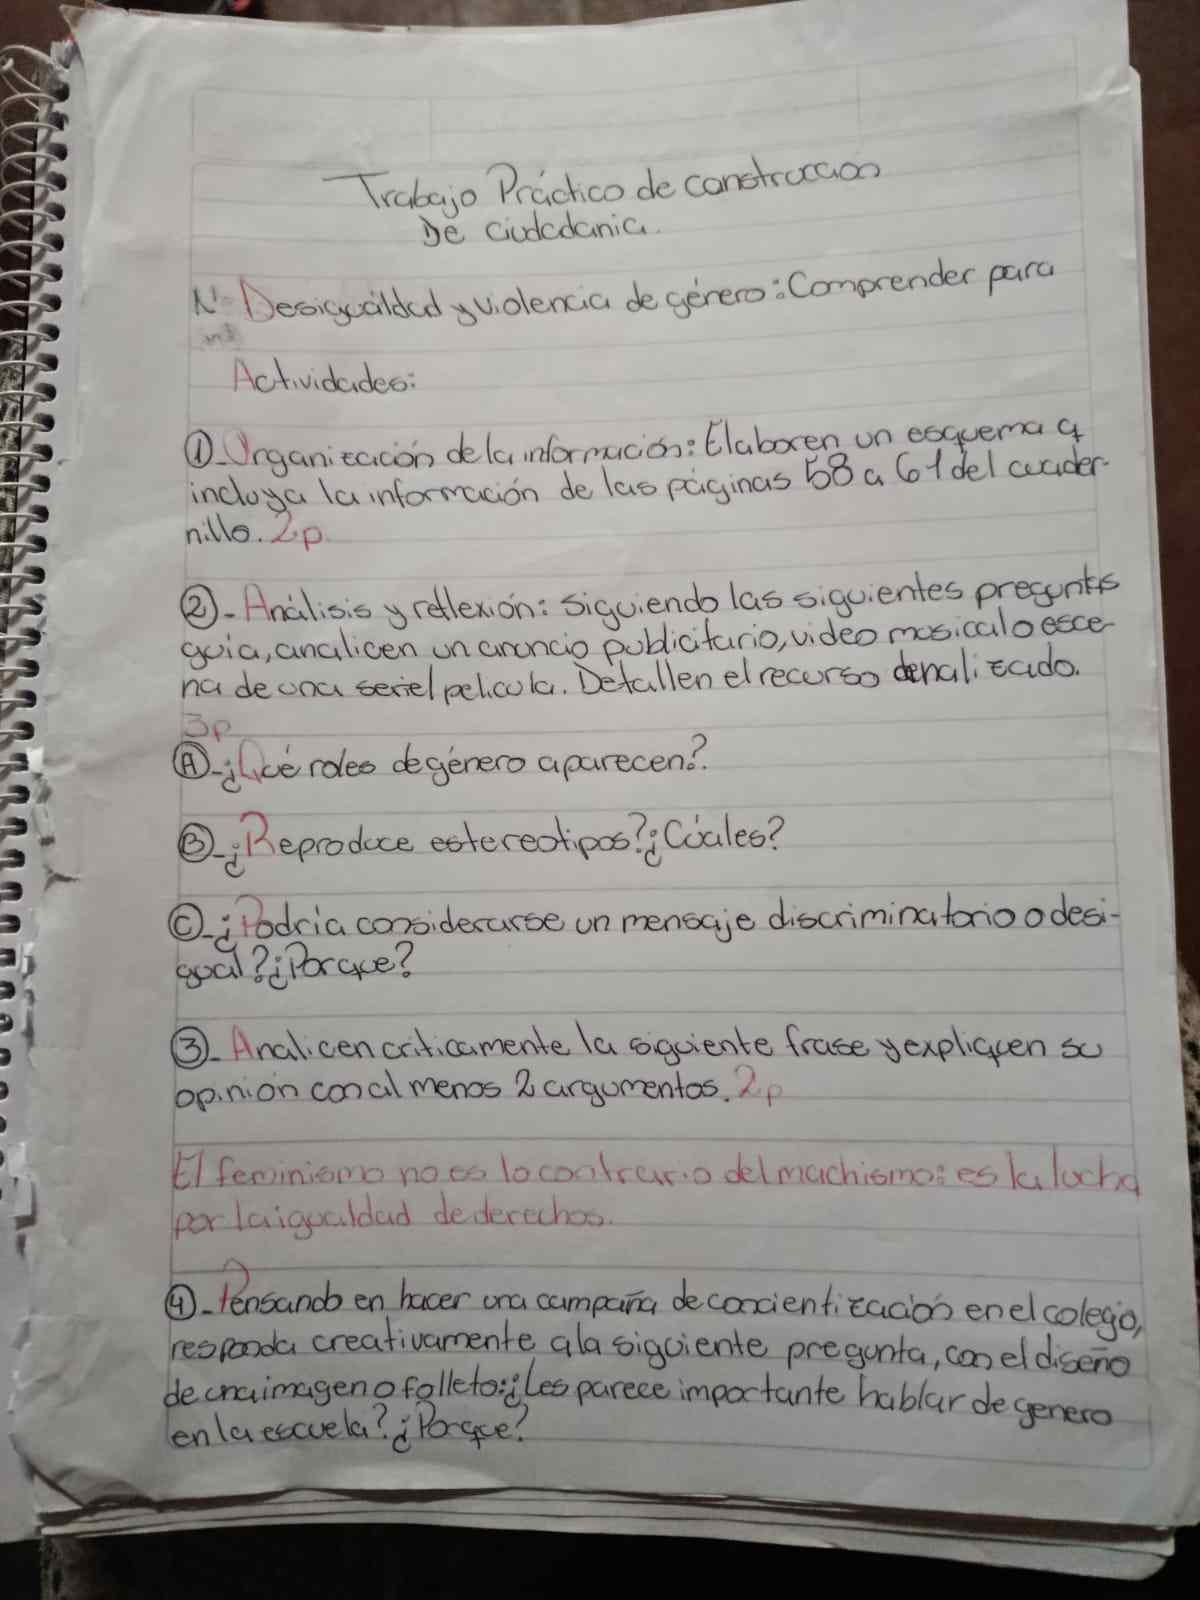 Trabajo Práctico de construccion
De ciudadania.
N= Desigualdad y violencia de género: Comprender para
Actividades:
①-Organización de la información: Elaboren un esquema q
incluya la información de las páginas 58 a 61 del cuader-
nillo. 2p.
②- Análisis y reflexión: Siguiendo las siguientes preguntas
guía, analicen un anuncio publicitario, video musical o esce-
na de una serie/pelicula. Detallen el recurso analizado.
3p
Ⓐ-¿Qué roles de género aparecen?
Ⓑ-¿Reproduce estereotipos? ¿Cúales?
Ⓒ-¿Podría considerarse un mensaje discriminatorio o desi-
gual? ¿Porque?
③- Analicen criticamente la siguiente frase y expliquen su
opinión con al menos 2 argumentos. 2p
El feminismo no es lo contrario del machismo: es la lucha
por la igualdad de derechos.
④- Pensando en hacer una campaña de concientización en el colegio,
responda creativamente a la siguiente pregunta, con el diseño
de una imagen o folleto: ¿Les parece importante hablar de genero
en la escuela? ¿Porque?